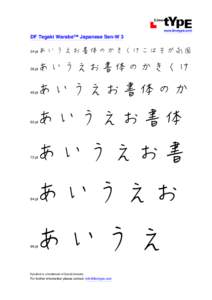 Linotype
www.linotype.com
DF Tegaki Warabe™ Japanese Serv W 3
24 pt あいうえお書体のかきくけこはそが永国
36 pt あいうえお書体のかきくけ
48 pt あいうえお書体のか
60 pt あいうえお書体
72 pt あいうえお書
84 pt あいうえお
96 pt あいうえ
For further information please contact: info@linotype.com